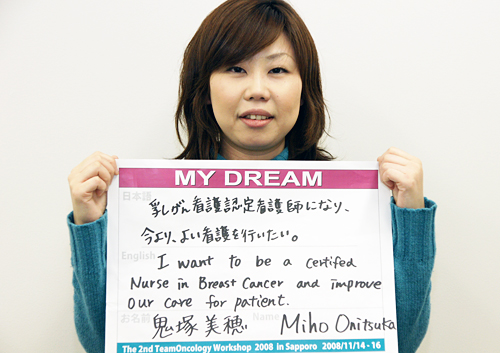 MY DREAM
日本語
乳がん看護認定看護師になり、
今より、よい看護を行いたい。
English
I want to be a certifed
Nurse in Breast Cancer and improve
Our care for patient.
お名前 Name
鬼塚美穂 Miho Onitsuka
The 2nd TeamOncology Workshop 2008 in Sapporo 2008/11/14 - 16